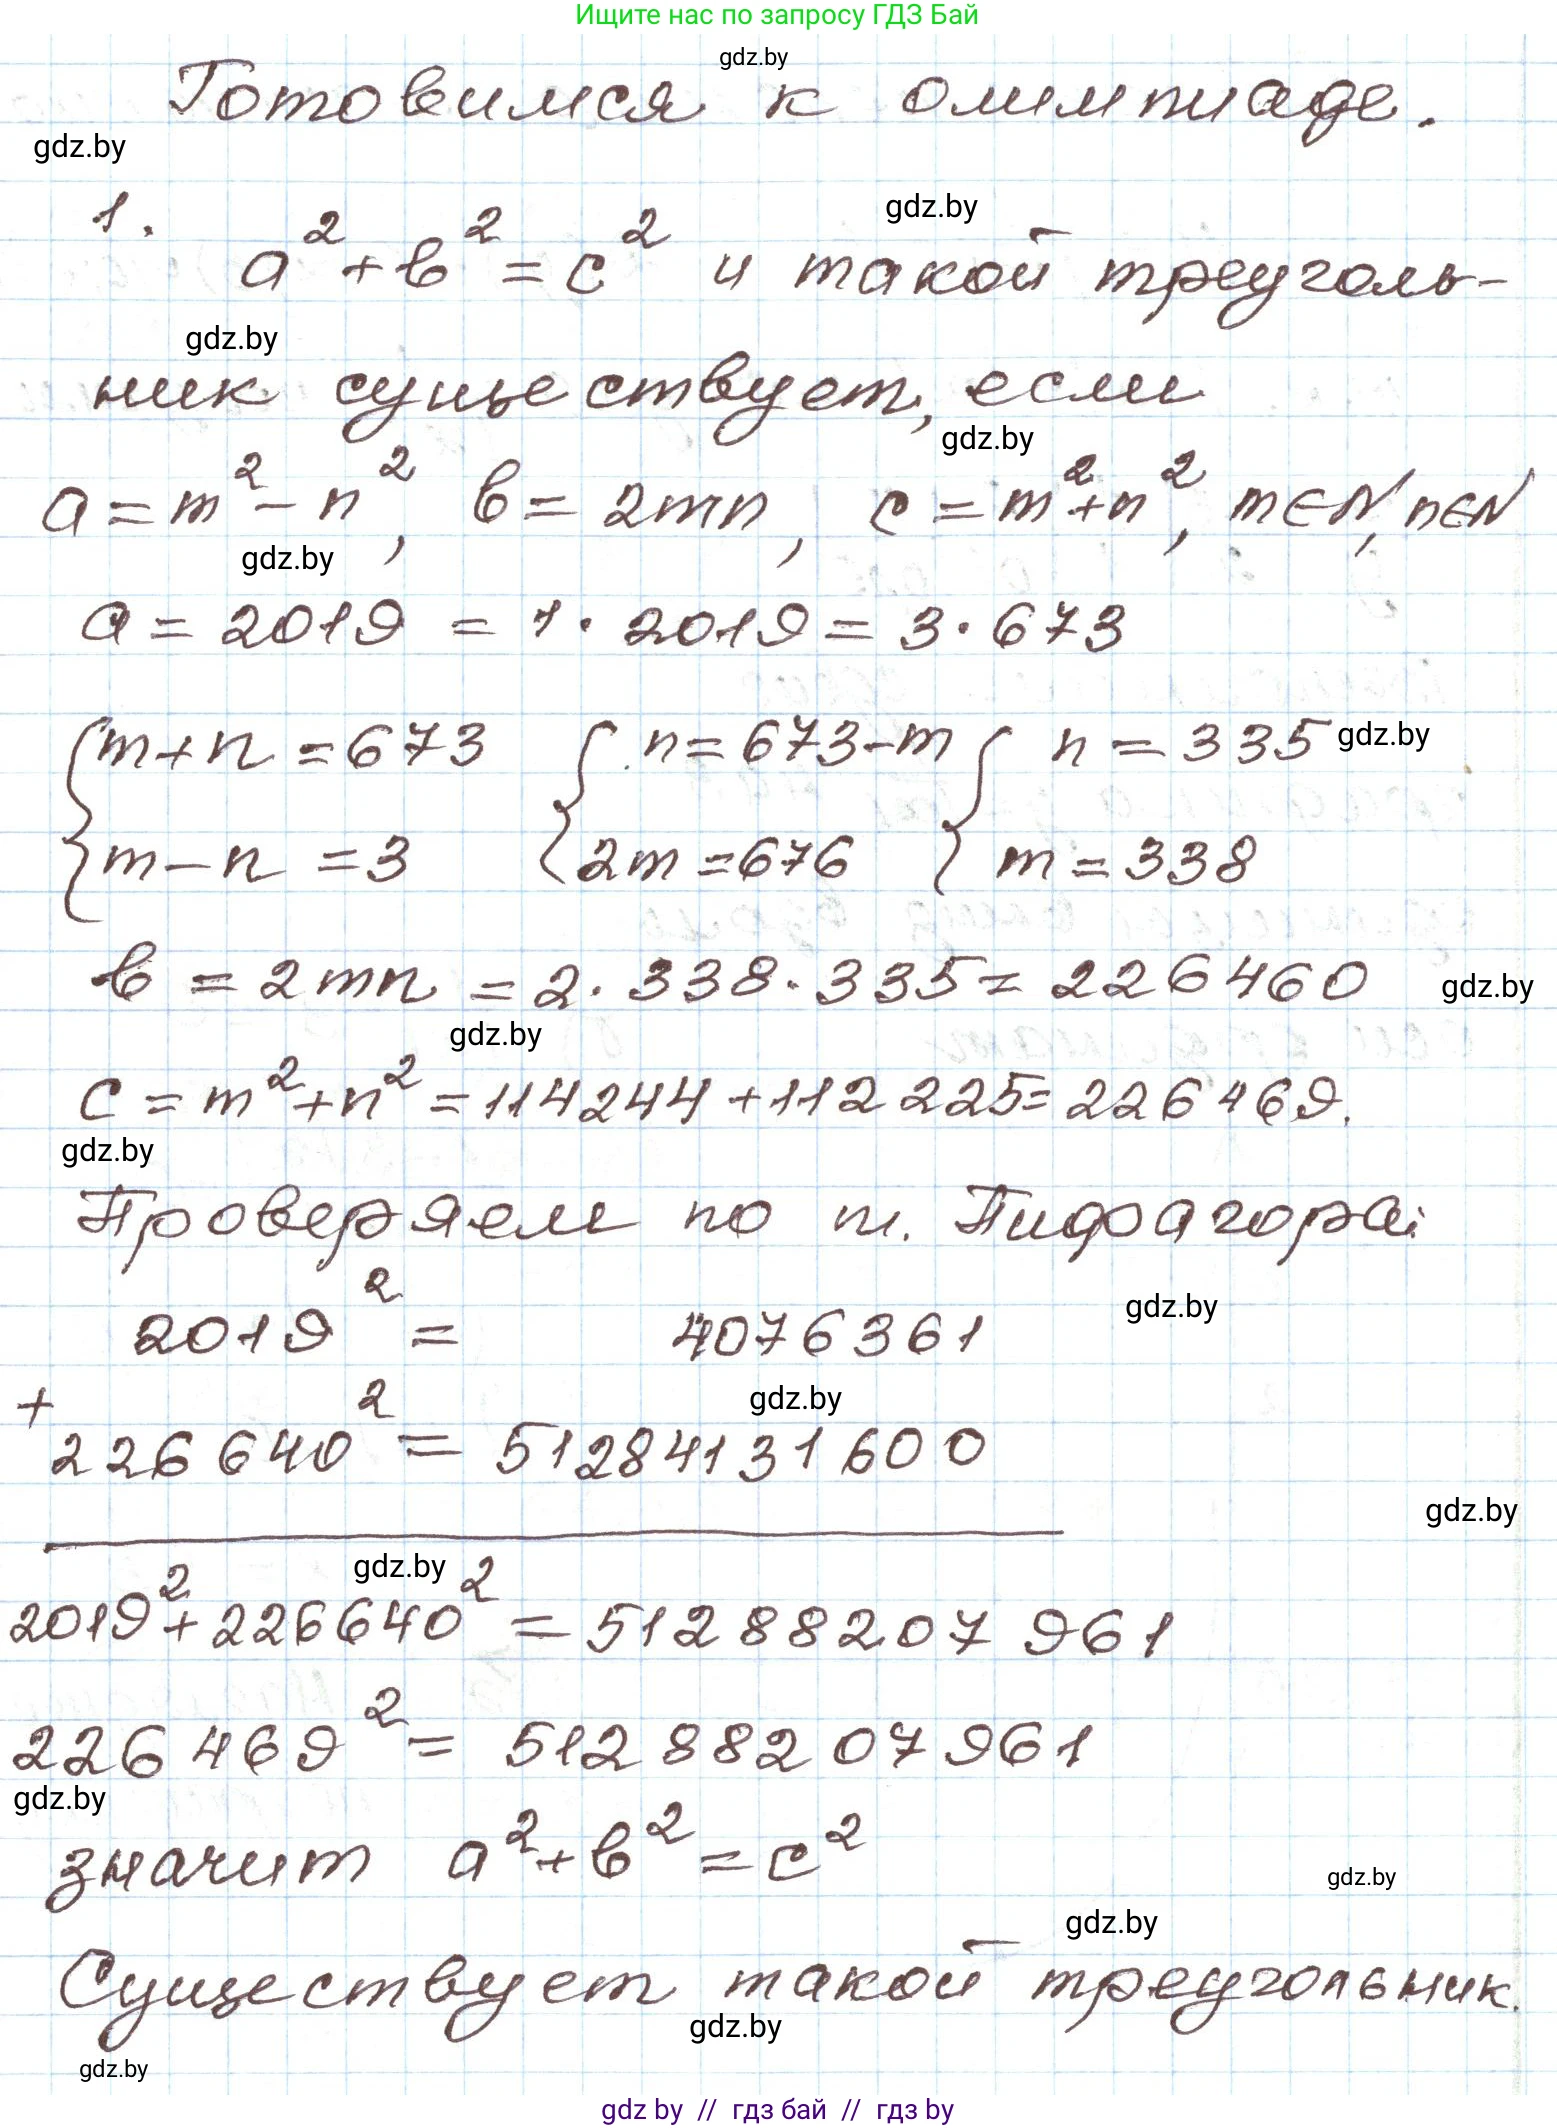 Ищите нас по запросу ГДЗ Бай
gdz.by
Готовимся к олимпиаде.
gdz.by
1.
gdz.by
a² + b² = c² и такой треуголь-
gdz.by
ник существует, если
gdz.by
a = m² - n², b = 2mn, c = m² + n², m∈N, n∈N
gdz.by
a = 2019 = 1 · 2019 = 3 · 673
{ m + n = 673 { n = 673 - m { n = 335 gdz.by
m - n = 3 2m = 676 m = 338
b = 2mn = 2 · 338 · 335 = 226460 gdz.by
gdz.by
c = m² + n² = 114244 + 112225 = 226469.
gdz.by
Проверяем по т. Пифагора:
gdz.by
2019² = 4076361
gdz.by
+ 226640² = 51284131600
gdz.by
gdz.by
2019² + 226640² = 51288207961
226469² = 51288207961
gdz.by
значит a² + b² = c²
gdz.by
gdz.by
Существует такой треугольник.
gdz.by
gdz.by
gdz by // гдз бай // gdz by